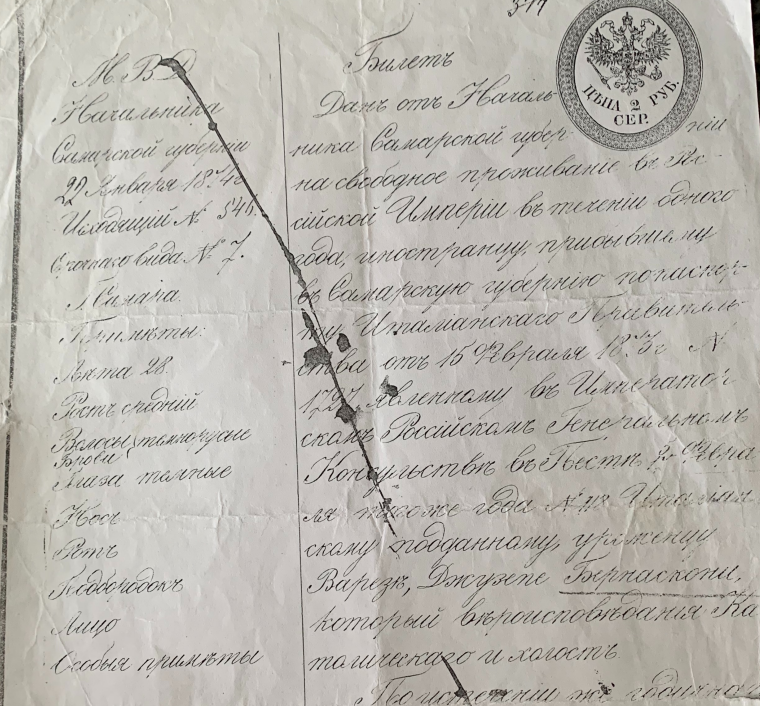 317
М. В. Д.
Начальника
Самарской губернии
Января
Исходящій № 546.
вида № 7.
г. Самара.
Примѣты:
Лѣта 28.
Ростъ средній
Волосы темнорусые
Брови
Глаза темные
Носъ
Ротъ
Подбородокъ
Лицо
Особыя примѣты
Билетъ
ЦѢНА 2 РУБ.
СЕР.
Данъ отъ Началь-
ника Самарской губер-ніи
на свободное проживаніе въ Рос-
сійской Имперіи въ теченіи одного
года, иностранцу, прибывшему
въ Самарскую губернію по паспор-
ту Италіанскаго Правитель-
ства отъ 15 Февраля №
1727 явленному въ Император-
скомъ Россійскомъ Генеральномъ
Консульствѣ въ Пестѣ Февра
ля того же года № Италіан
скому подданному, уроженцу
Варезъ, Джузепе Бернаскони,
который вѣроисповѣданія Ка
толическаго и холостъ
По истеченіи же годичнаго